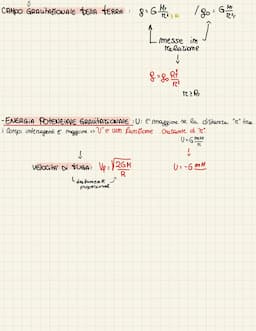 CAMPO GRAVITAZIONALE DELLA TERRA: g = G M_T / r² / g₀ = G M_T / R²_T
messe in
relazione
g = g₀ R_T² / r²
r ≥ R_T
- ENERGIA POTENZIALE GRAVITAZIONALE: U: È maggiore se la distanza "r" tra
i corpi interagenti è maggiore => "U" è una funzione crescente di "r"
U = G mM / r
VELOCITÀ DI FUGA: V_F = √(2GM / R) U = -G mM
direttamente
proporzionali